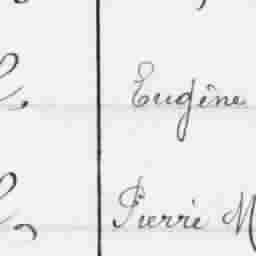 Eugène
Pierre M